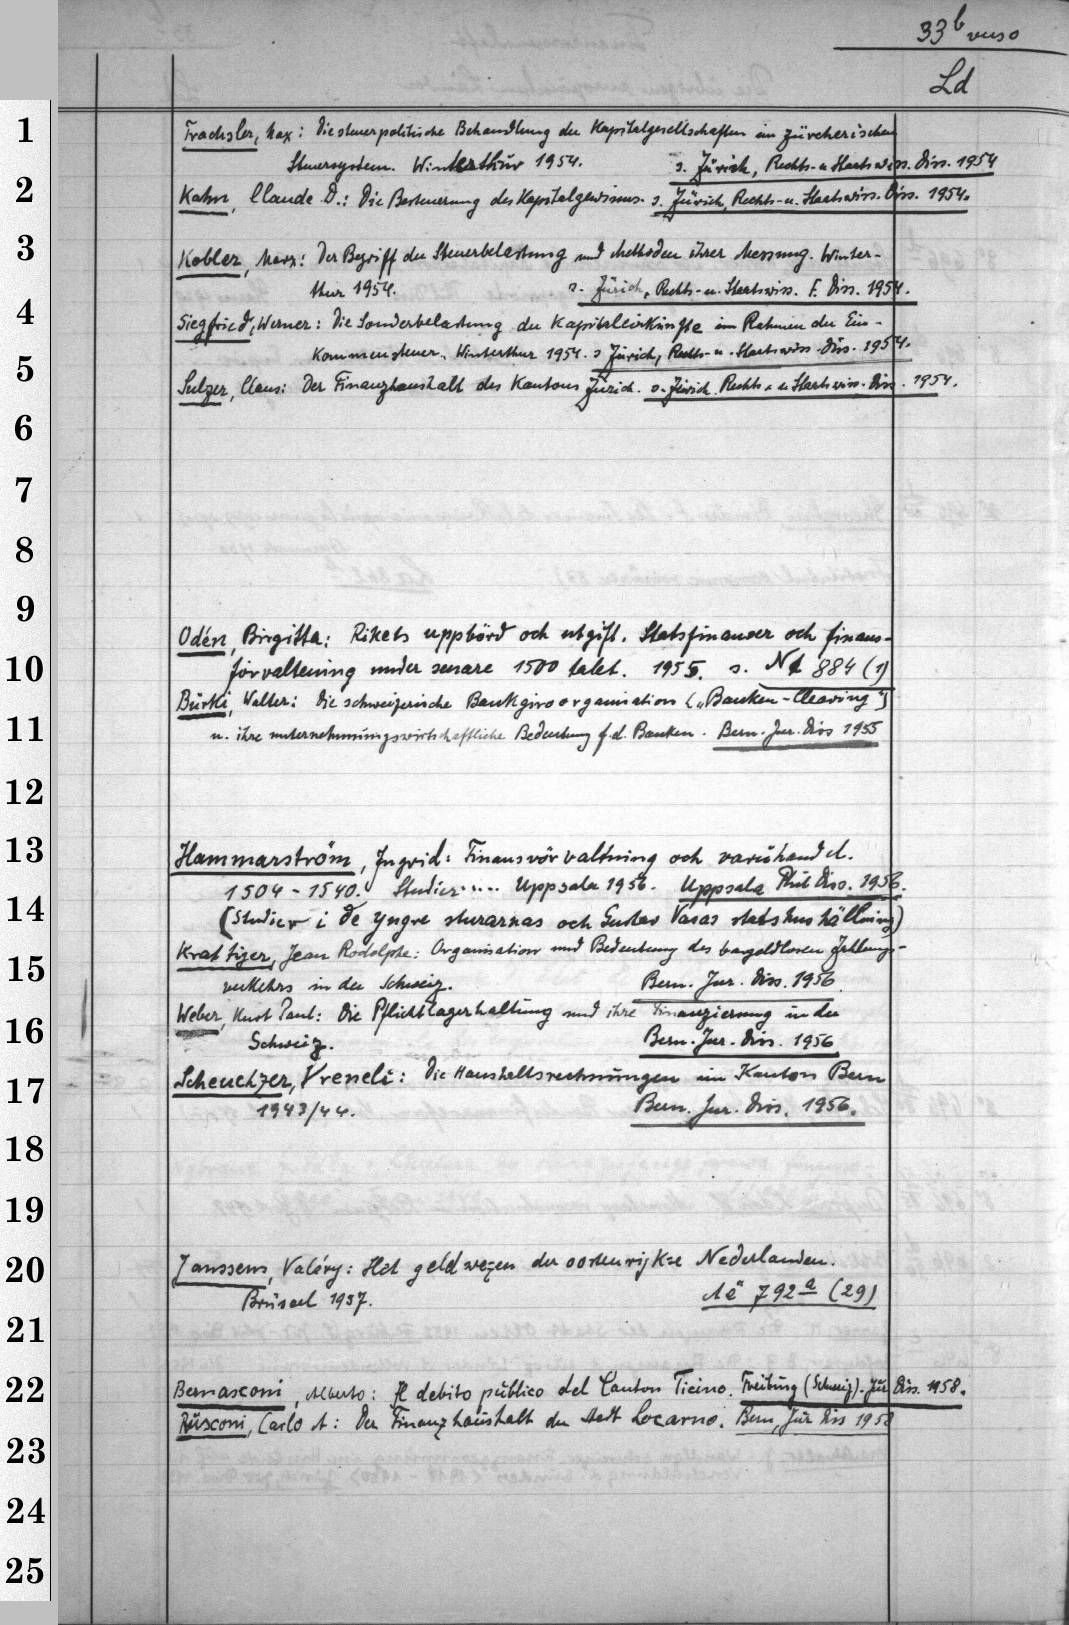 33b verso
Ld
1 Trachsler, Max: Die steuerpolitische Behandlung der Kapitalgesellschaften im zürcherischen
Steuersystem. Winterthur 1954. s. Zürich, Rechts- u Staatswiss. Diss. 1954
2 Kahn, Claude D.: Die Besteuerung des Kapitalgewinns. s. Zürich, Rechts- u. Staatswiss. Diss. 1954.
3 Kobler, Marx: Der Begriff der Steuerbelastung und Methoden ihrer Messung. Winter-
thur 1954. s. Zürich, Rechts- u. Staatswiss. F. Diss. 1954.
4 Siegfried, Werner: Die Sonderbelastung der Kapitaleinkünfte im Rahmen der Ein-
kommensteuer. Winterthur 1954. s Zürich, Rechts- u. Staatswiss. Diss. 1954.
5 Sulzer, Claus: Der Finanzhaushalt des Kantons Zürich. s. Zürich. Rechts- u Staatswiss. Diss. 1954.
6
7
8
9
Odén, Birgitta: Rikets uppbörd och utgift. Statsfinanser och finans-
10 förvaltening under senare 1500 talet. 1955. s. Nt 884 (1)
Bürki, Walter: Die schweizerische Bankgiroorganisation („Banken-Clearing")
11 u. ihre unternehmungswirtschaftliche Bedeutung f. d. Banken. Bern. Jur. Diss 1955
12
13 Hammarström, Ingrid: Finansvörvaltning och varuhandel.
1504-1540. Studier..... Uppsala 1956. Uppsala Phil Diss. 1956.
14 (Studier i de yngre sturarnas och Gustav Vasas statshushållning)
Krattiger, Jean Rodolphe: Organisation und Bedeutung des bargeldlosen Zahlungs-
15 verkehrs in der Schweiz. Bern. Jur. Diss. 1956.
Weber, Kurt Paul: Die Pflichtlagerhaltung und ihre Finanzierung in der
16 Schweiz. Bern. Jur. Diss. 1956
17 Scheuchzer, Vreneli: Die Haushaltsrechnungen im Kanton Bern
1943/44. Bern. Jur. Diss. 1956.
18
19
20 Janssens, Valéry: Het geldwezen der oostenrijkse Nederlanden.
Brüssel 1957. Aë 792a (29)
21
22 Bernasconi, Alberto: Il debito pùblico del Canton Ticino. Freiburg (Schweiz). Jur Diss. 1958.
Rusconi, Carlo A: Der Finanzhaushalt der Stadt Locarno. Bern, Jur Diss 1958
23
24
25